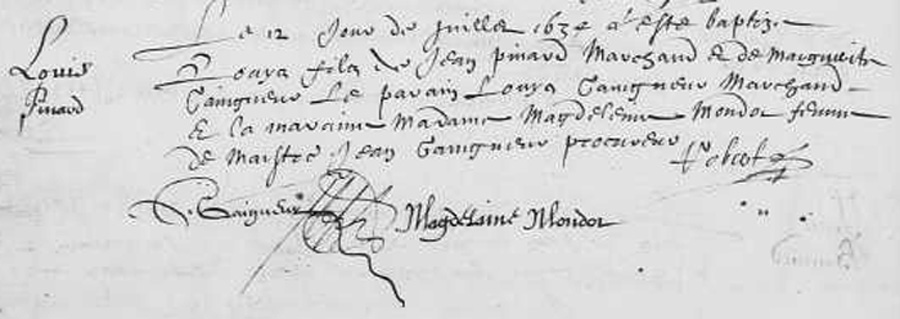 Louis
Pinard
Le 12 Jour de Juillet 1634 a este baptizé
Louys filz de Jean pinard Marchand & de Marguerite
Gaingneur Le parain Louys Gaingneur Marchand
& la maraine Madame Magdelenne Mondor femme
de Maistre Jean Gaingneur procureur
L. Gaigneur
Magdelaine Mondor